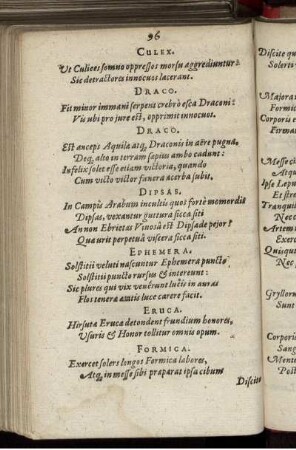 96
CULEX.
Ut Culices somno oppressos morsu aggrediuntur:
Sic detractores innocuos lacerant.
DRACO.
Fit minor immani serpens crebrò esca Draconi:
Vis ubi pro jure est, opprimit innocuos.
DRACO.
Est anceps Aquilæ atq; Draconis in aëre pugna,
Deq; alto in terram sæpius ambo cadunt:
Infelix solet esse etiam victoria, quando
Cum victo victor funera acerba subit.
DIPSAS.
In Campis Arabum incultis quos fortè momordit
Dipsas, vexantur guttura sicca siti
An non Ebrietas Vinosa est Dipsade pejor?
Quæ urit perpetuâ viscera sicca siti.
EPHEMERA.
Solstitii veluti nascuntur Ephemera puncto
Solstitii puncto rursus & intereunt:
Sic plures qui vix venêrunt lucis in auras
Flos tenera ætatis luce carere facit.
ERUCA.
Hirsuta Eruca detondent frundium honores,
Usuris & Honor tollitur omnis opum.
FORMICA.
Exercet solers longos Formica labores,
Atq; in messe sibi præparat ipsa cibum
Discite
Discite qu
Solerti
Majora
Formic
Corporis e
Format
Messe ci
Atqu
Ipse Lepu
Et stre
Tranquil
Nocte
Artem
Exerc
Quisqu
Nec
Gryllor
Sunt
Corpor
Sang
Mente
Post